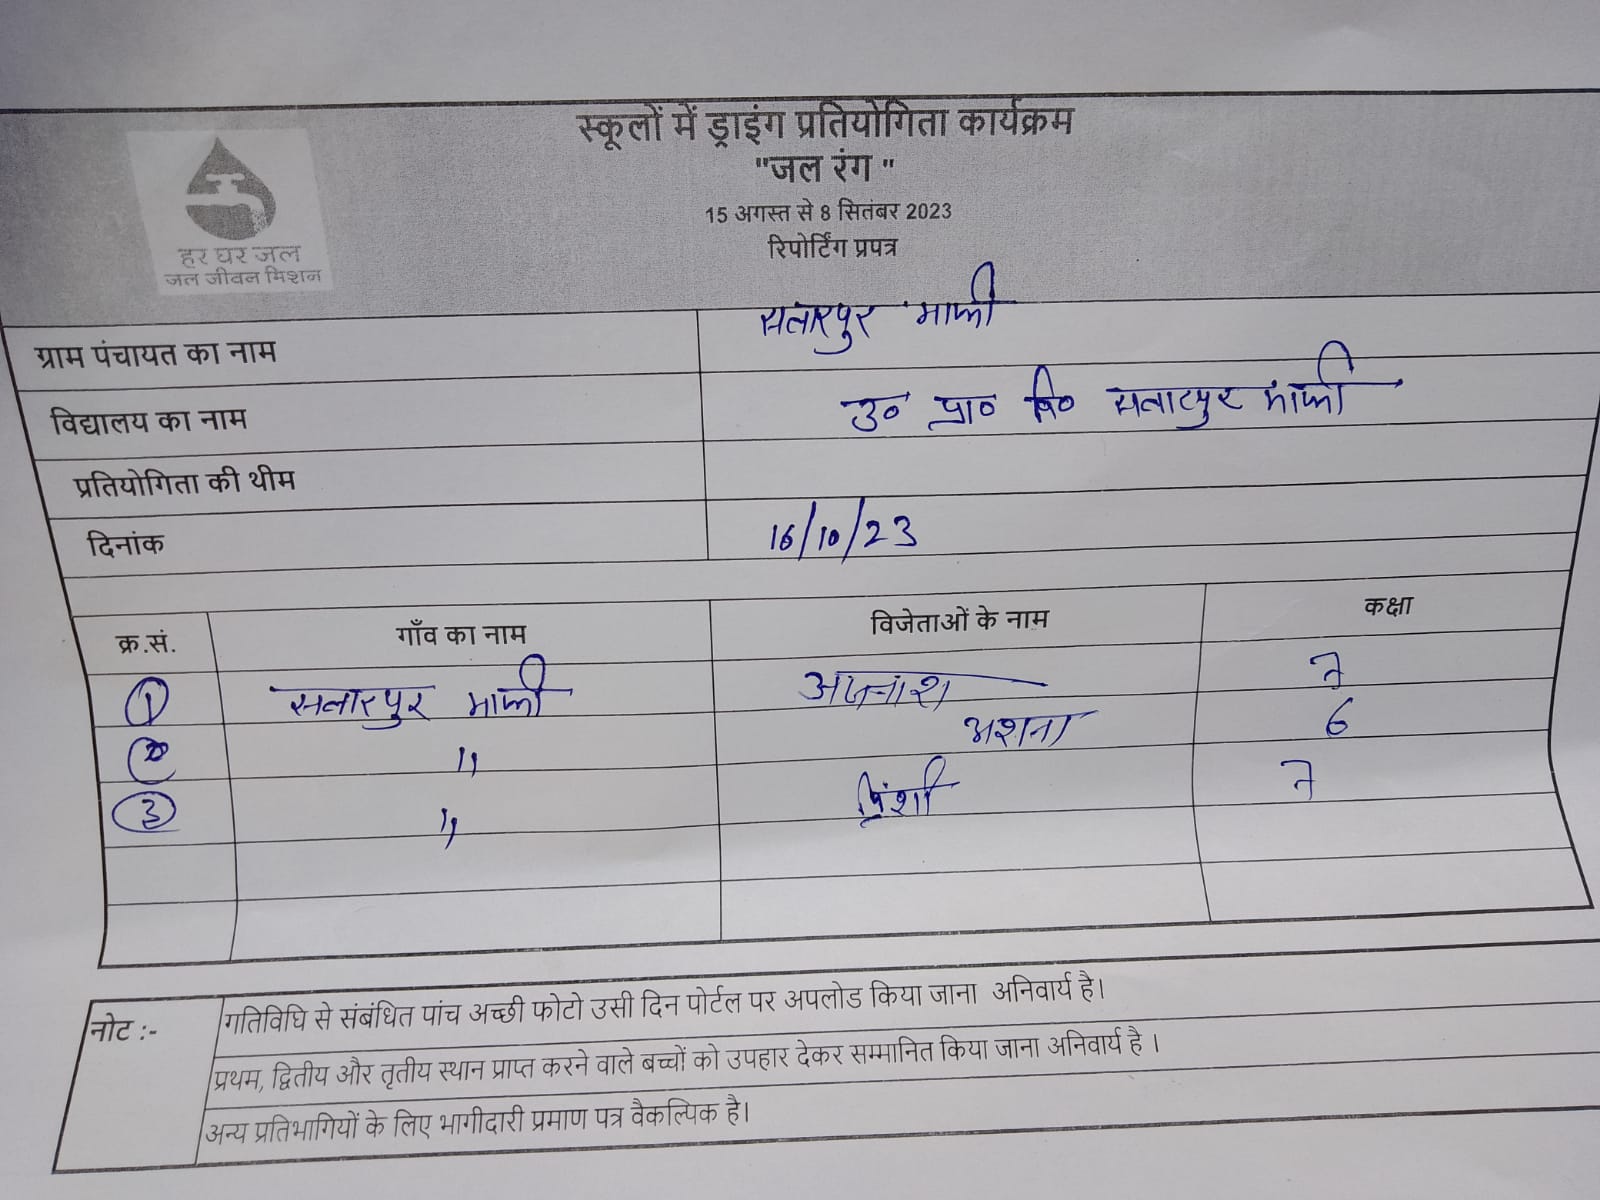 स्कूलों में ड्राइंग प्रतियोगिता कार्यक्रम
"जल रंग "
15 अगस्त से 8 सितंबर 2023
रिपोर्टिंग प्रपत्र
हर घर जल
जल जीवन मिशन
ग्राम पंचायत का नाम सतारपुर माफी
विद्यालय का नाम उ० प्रा० वि० सतारपुर माफी
प्रतियोगिता की थीम
दिनांक 16/10/23
क्र.सं. गाँव का नाम विजेताओं के नाम कक्षा
1 सतारपुर माफी 7
2 " अशना 6
3 " 7
नोट :-
गतिविधि से संबंधित पांच अच्छी फोटो उसी दिन पोर्टल पर अपलोड किया जाना अनिवार्य है।
प्रथम, द्वितीय और तृतीय स्थान प्राप्त करने वाले बच्चों को उपहार देकर सम्मानित किया जाना अनिवार्य है ।
अन्य प्रतिभागियों के लिए भागीदारी प्रमाण पत्र वैकल्पिक है।